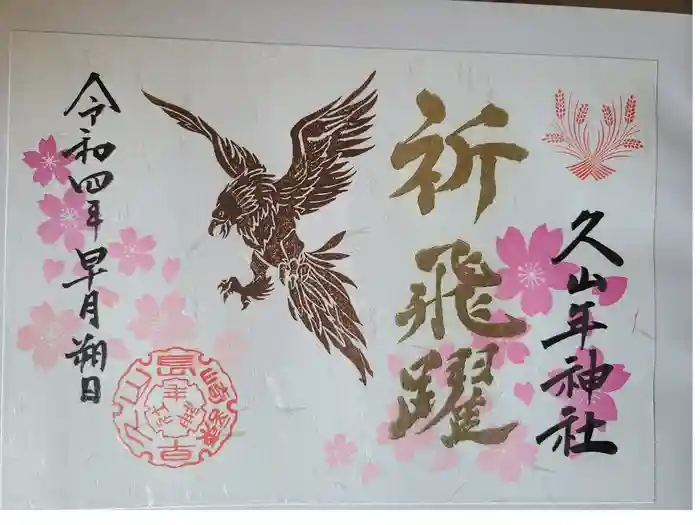 久山年神社
祈飛躍
令和四年 早月朔日